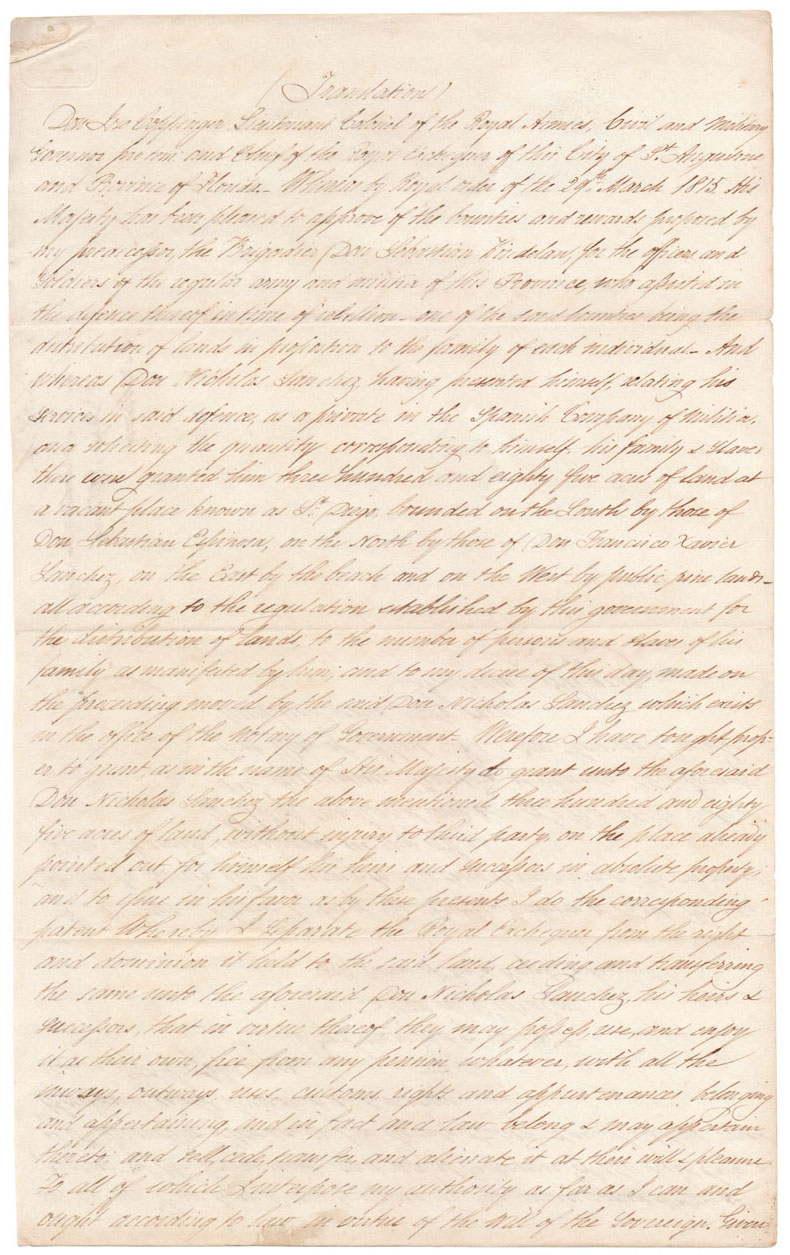 (Translation)
Don Jose Coppinger Lieutenant Colonel of the Royal Armies, Civil and Military
Governor pro tem: and Chief of the Royal Exchequer of this City of St. Augustine
and Province of Florida_ Whereas by Royal order of the 29th March 1815 His
Majesty has been pleased to approve of the bounties and rewards proposed by
my predecessor, the Brigadier Don Sebastian Kindelan, for the officers and
Soldiers of the regular army and militia of this Province, who assisted in
the defence thereof, in time of rebellion_ one of the said bounties being the
distribution of lands in proportion to the family of each individual_ And
whereas Don Nicholas Sanchez, having presented himself, relating his
services in said defence, as a private in the Spanish Company of Militia,
and soliciting the quantity corresponding to himself, his family & slaves
there were granted him three hundred and eighty five acres of land at
a vacant place known as St. Diego, bounded on the South by those of
Don Sebastian Espinosa, on the North by those of Don Francisco Xavier
Sanchez, on the East by the beach and on the West by public pine lands_
all according to the regulation established by this government for
the distribution of lands, to the number of persons and slaves of his
family as manifested by him; and to my decree of this day, made on
the preceeding moved by the said Don Nicholas Sanchez which exists
in the office of the Notary of Government. Werefore I have tought prop-
er to grant as in the name of His Majesty do grant unto the aforesaid
Don Nicholas Sanchez the above mentioned three hundred and eighty
five acres of land, without injury to third party, on the place already
pointed out for himself his heirs and successors in absolute property;
and to issue in his favor as by these presents I do the corresponding
patent Whereby I separate the Royal Exchequer from the right
and dominion it held to the said land, ceeding and transferring
the same unto the aforesaid Don Nicholas Sanchez, his heirs &
successors, that in virtue thereof they may possess, use, and enjoy
it as their own, free from any pension whatever, with all the
inways, outways, uses, customs, rights and appurtenances, belonging
and appertaining, and in fact and law belong & may appertain
thereto: and sell, cede, transfer, and alienate it at their will & pleasure
To all of which I interpose my authority as far as I can and
ought according to law, in virtue of the Will of the Sovereign. Given